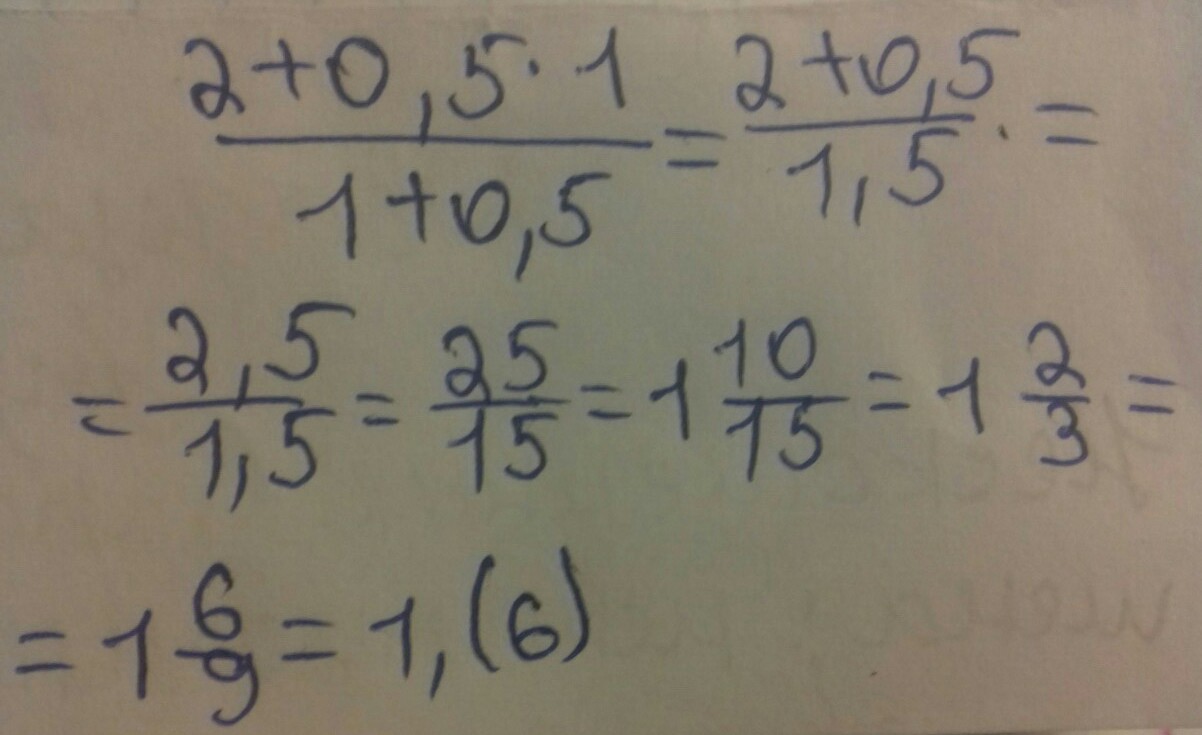 2+0,5·1/1+0,5 = 2+0,5/1,5 · =
= 2,5/1,5 = 25/15 = 1 10/15 = 1 2/3 =
= 1 6/9 = 1,(6)